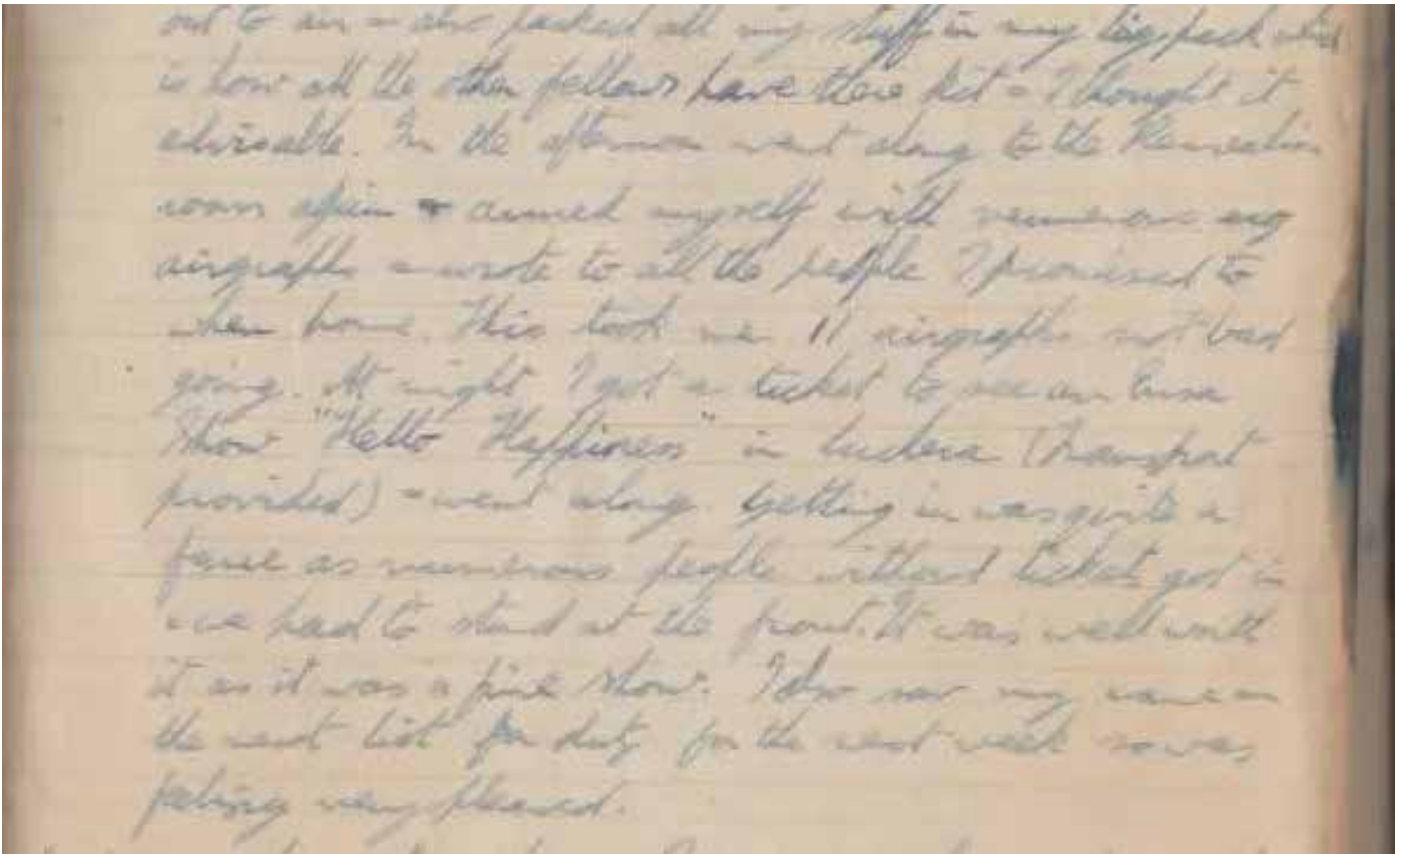 out to air - also packed all my stuff in my big pack which
is how all the other fellows have there kit - I thought it
advisable. In the afternoon went along to the Recreation
room again & armed myself with numerous
airgraphs - wrote to all the people I promised to
when home. This took me 11 airgraphs not bad
going. At night I got a ticket to see an Ensa
Show "Hello Happiness" in Lucera (Transport
provided) - went along. Getting in was quite a
farce as numerous people without tickets got in
we had to stand at the front. It was well worth
it as it was a fine show. I also saw my name on
the next list for duty for the next week so was
feeling very pleased.